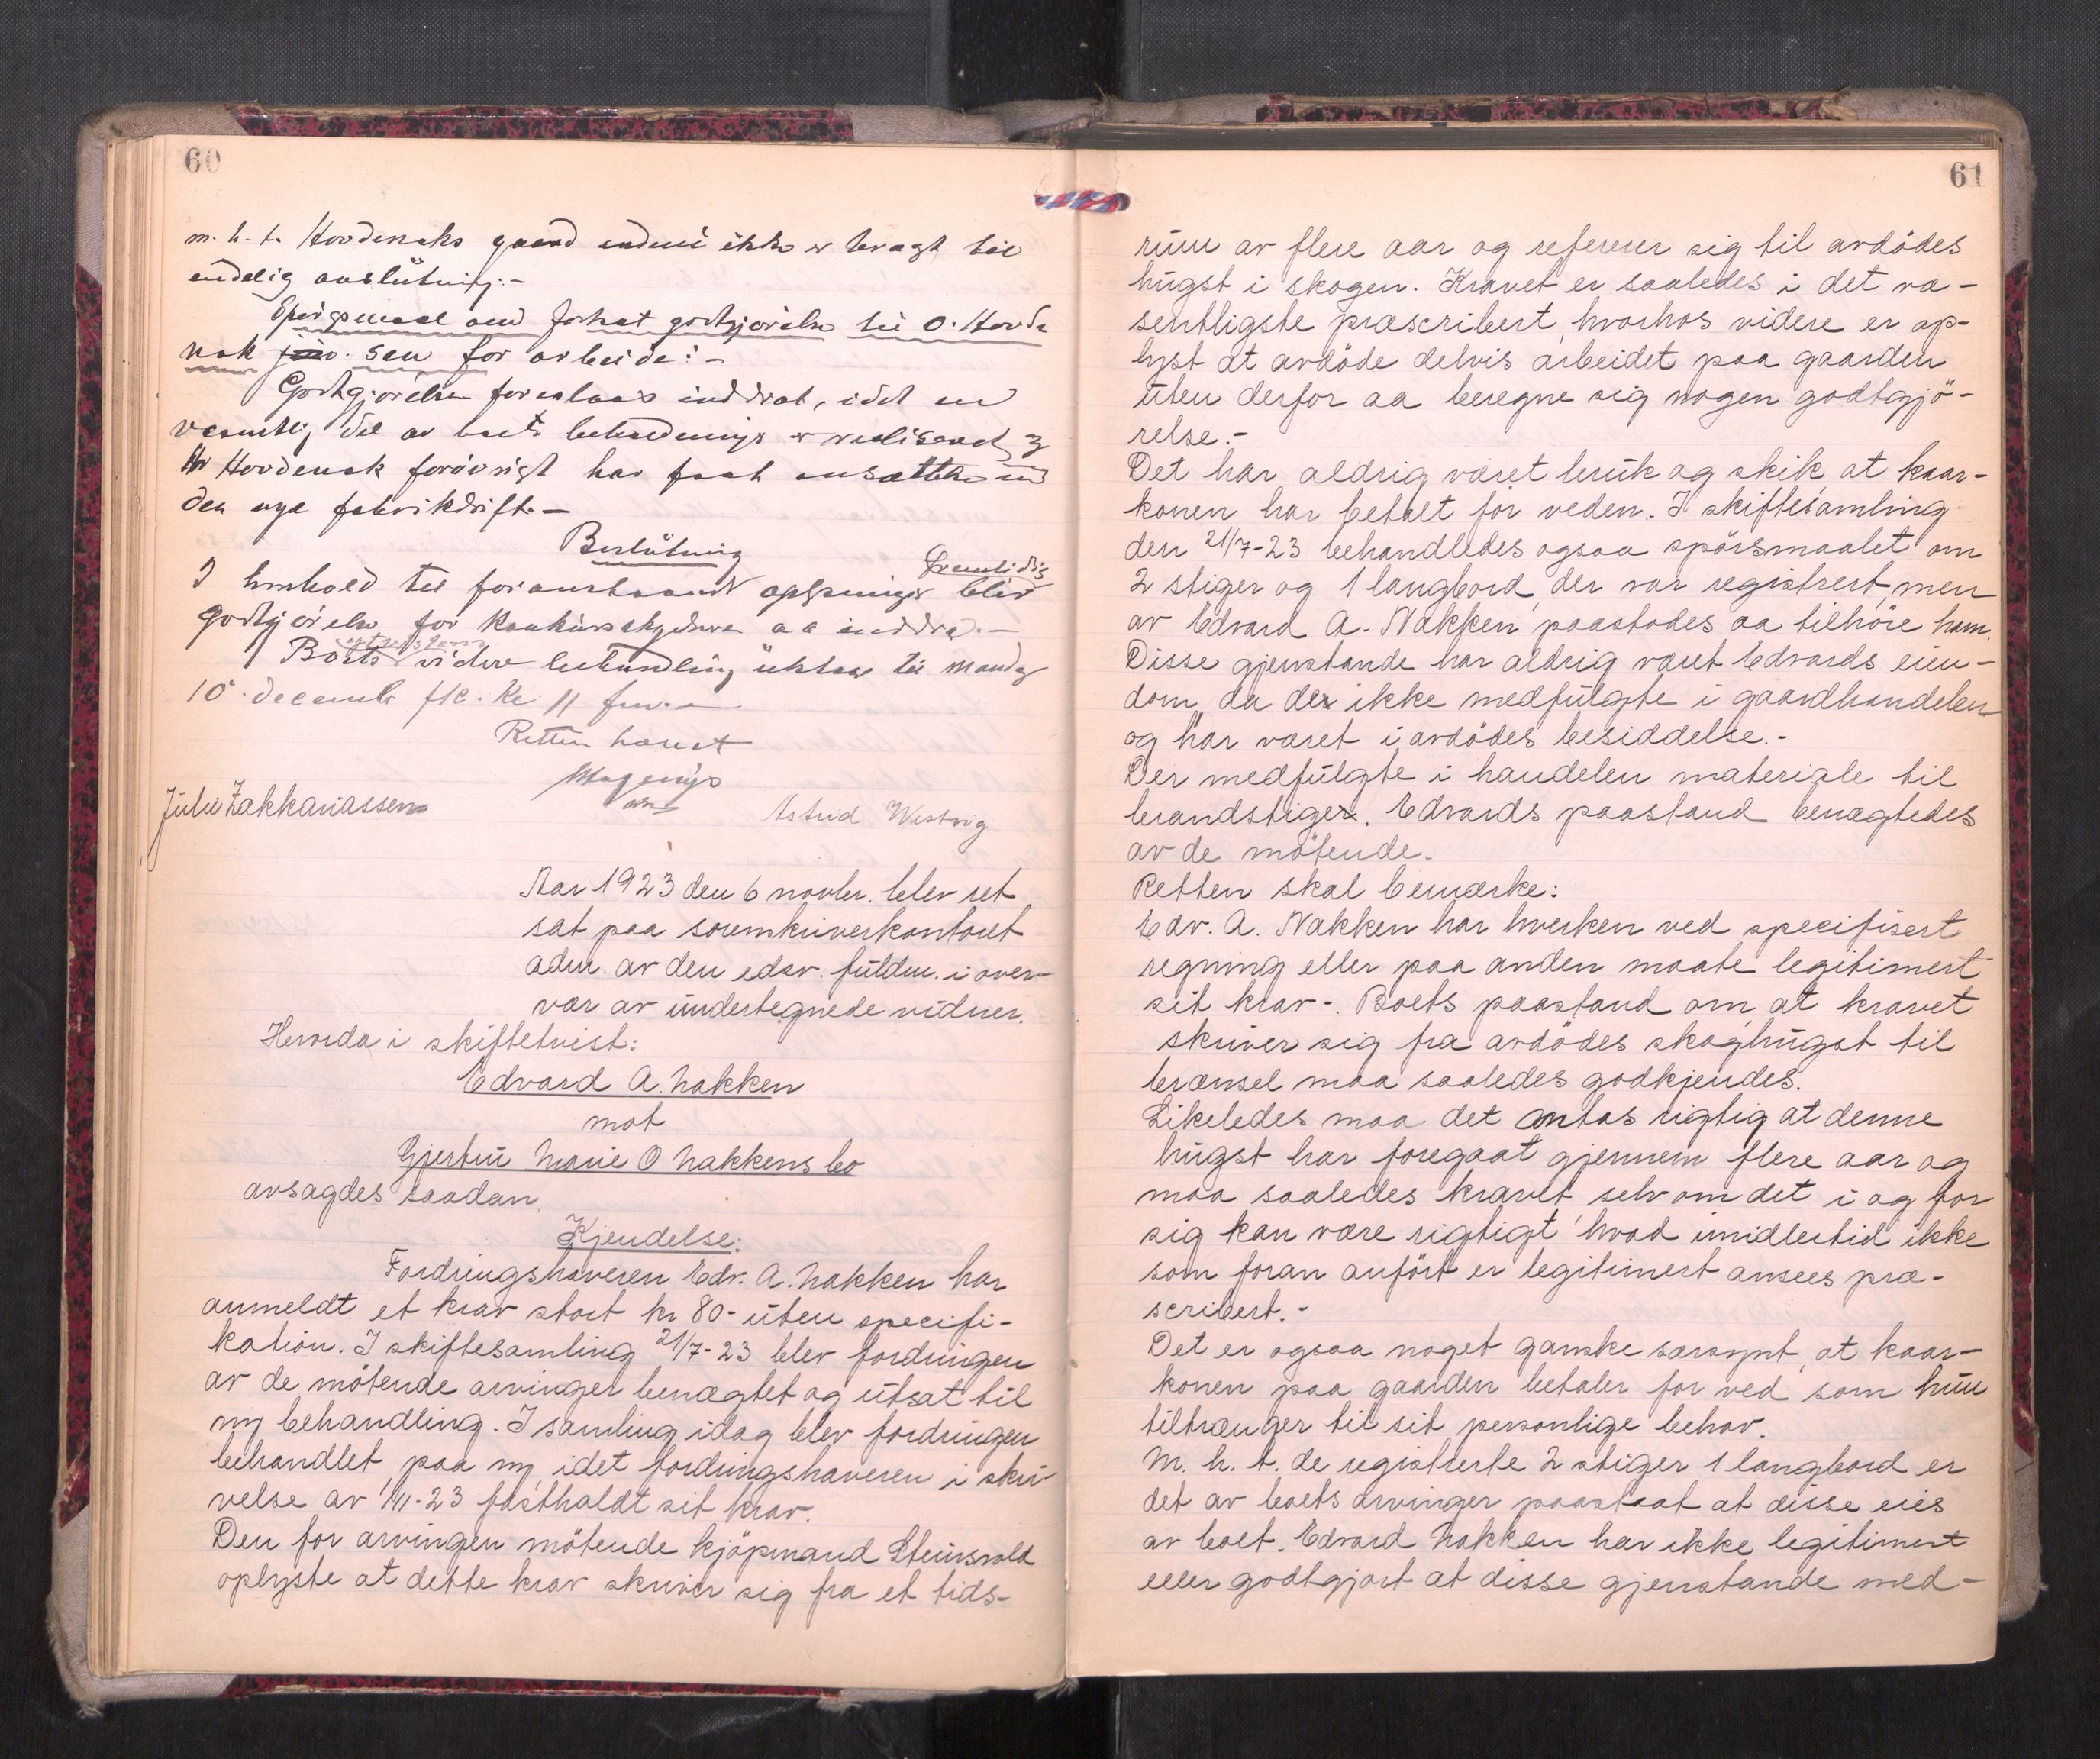 60
m. h. t. Hovdenaks gaard endnu ikke er bragt til
endelig avslutning.-
Spørgsmaal om fortsat godtgjørelse til O. Hovde
nak jun. sen for arbeide:-
Godtgjørelsen foreslaaes inddrat, idet en
væsentlig del av boets beholdninger er realiseret og
Hr Hovdenak forøvrigt har faat ansættelse
den nye fabrikdrift.-
Beslutning
I henhold til foranstaaende oplysninger blir
fremtidig
godtgjørelse for konkursskyldneren aa inddra.-
Boets videre behandling utstaar til mandag
10. decembr ftk. kl 11 fm.-
Retten hævet
Astrid Westvig
Julie Zakkariassen
Aar 1923 den 6 novbr. blev ret
sat paa sorenskriverkontoret
adm. av den edsv. fuldm. i over-
vær av undertegnede vidner.
Hvorda i skiftetvist:
Edvard A. Nakken
mot
Gjertru Marie O Nakkens bo
avsagdes saadan
Kjendelse:
Fordringshaveren Edv. A. Nakken har
anmeldt et krav stort kr 80- uten specifi-
kation. I skiftesamling 21/7-23 blev fordringen
av de møtende arvinger benægtet og utsat til
ny behandling. I samling idag blev fordringen
behandlet paa ny, idet fordringshaveren i skri-
velse av 1/11-23 fastholdt sit krav.
Den for arvingen møtende kjøpmand Steinsvold
oplyste at dette krav skriver sig fra et tids-
61
rum av flere aar og referer sig til avdødes
hugst i skogen. Kravet er saaledes i det væ-
sentligste præscribert, hvorhos videre er op-
lyst at avdøde delvis arbeidet paa gaarden
uten derfor aa beregne sig nogen godtgjø-
relse.-
Det har aldrig været bruk og skik at kaar-
konen har betalt for veden. I skiftesamling
den 21/7-23 behandledes ogsaa spørsmaalet om
2 stiger og 1 langbord, der var registrert, men
av Edvard A. Nakken paastodes aa tilhøre ham.
Disse gjenstande har aldrig været Edvards eien-
dom, da der ikke medfulgte i gaardhandelen
og har været i avdødes besiddelse.-
Der medfulgte i handelen materiale til
brandstiger. Edvards paastand benægtedes
av de møtende.
Retten skal bemærke:
Edv. A. Nakken har hverken ved specifisert
regning eller paa anden maate legitimert
sit krav-. Boets paastand om, at kravet
skriver sig fra avdødes skoghugst til
brænsel maa saaledes godkjendes.
Likeledes maa det antas rigtig at denne
hugst har foregaat gjennem flere aar og
maa saaledes kravet, selv om det i og for
sig kan være rigtigt, hvad imidlertid ikke
som foran anført er legitimert ansees præ-
scribert.-
Det er ogsaa noget ganske særsynt, at kaar-
konen paa gaarden betaler for ved som hun
tiltrænger til sit personlige behov.
M. h. t. de registrerte 2 stiger 1 langbord er
det av boets arvinger paastaat at disse eies
av boet. Edvard Nakken har ikke legitimert
eller godtgjort at disse gjenstande med-